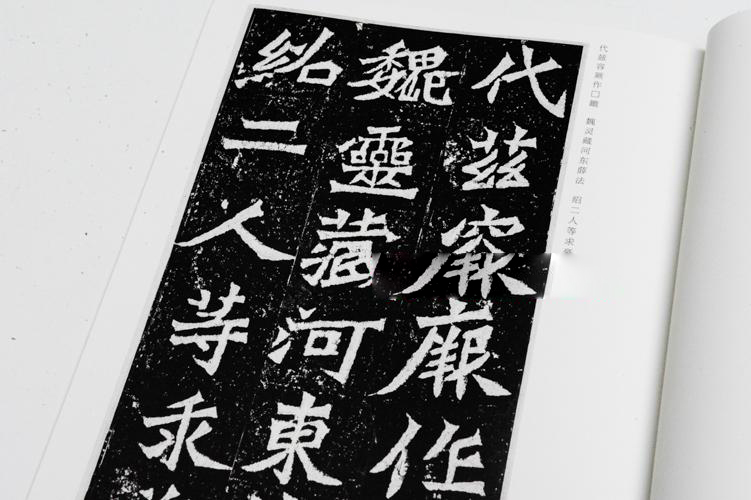 代茲容厥作
魏靈藏河東
紹二人等求
代兹容厥作□
魏灵藏河东薛法
绍二人等求